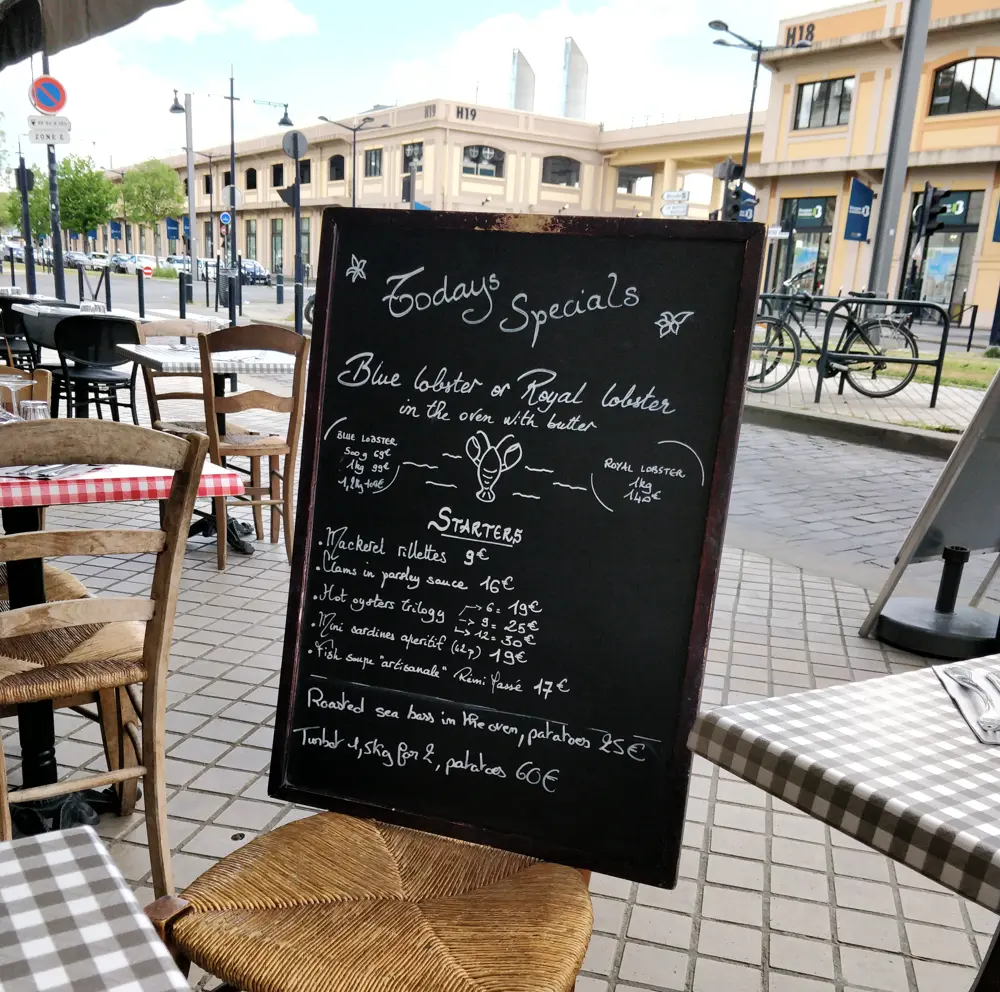 H18
H19
H19
ZONE 2
Todays Specials
Blue lobster or Royal lobster
in the oven with butter
BLUE LOBSTER
500g 69€
1kg 99€
ROYAL LOBSTER
1kg
140€
STARTERS
. Mackerel rillettes 9€
. Clams in parsley sauce 16€
. Hot oysters trilogy → 6 = 19€
→ 9 = 25€
→ 12 = 30€
. Mini sardines aperitif 19€
. Fish soupe "artisanale" Rémi Massé 17€
Roasted sea bass in the oven, patatoes 25€
Turbot 1,5kg for 2, patatoes 60€